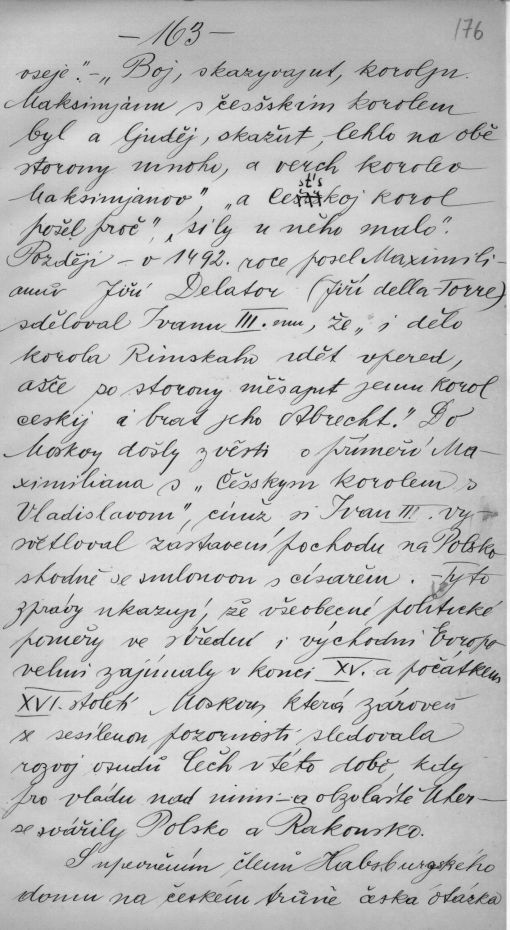 —163—
176
oseje". – „Boj, skazyvajut, koroljn.
Maksimjánu s češsškim korolem
byl a Gjuděj, skažut, lehlo na obě
storony mnoho, a verch korolev
Maksimjanov", „a češtskoj korol
pošel proč", „síly u něho malo".
Později – v 1492. roce posel Maximili-
anův Jiří Delator (Jiří della-Torre)
sděloval Ivanu III.emu, že „i dělo
korola Rimskaho idět vpered,
ašče po storony měšajut jemu korol
českij i brat jeho Abrecht." Do
Moskvy došly zvěsti o příměří Ma-
ximiliana s „Češskym korolem s
Vladislavom", čímž si Ivan III. vy-
světloval zastavení pochodu na Polsko
shodně se smlouvou s císařem. Tyto
zprávy ukazují, že všeobecné politické
poměry ve střední i východní Evropě
velmi zajímaly v konci XV. a počátkem
XVI. století Moskvu, která zároveň
se sesílenou pozorností sledovala
rozvoj osudů Čech v této době, kdy
pro vládu nad nimi – a obzvláště Uher –
se svářily Polsko a Rakousko.
S upevněním členů Habsburgského
domu na českém trůně česká otázka